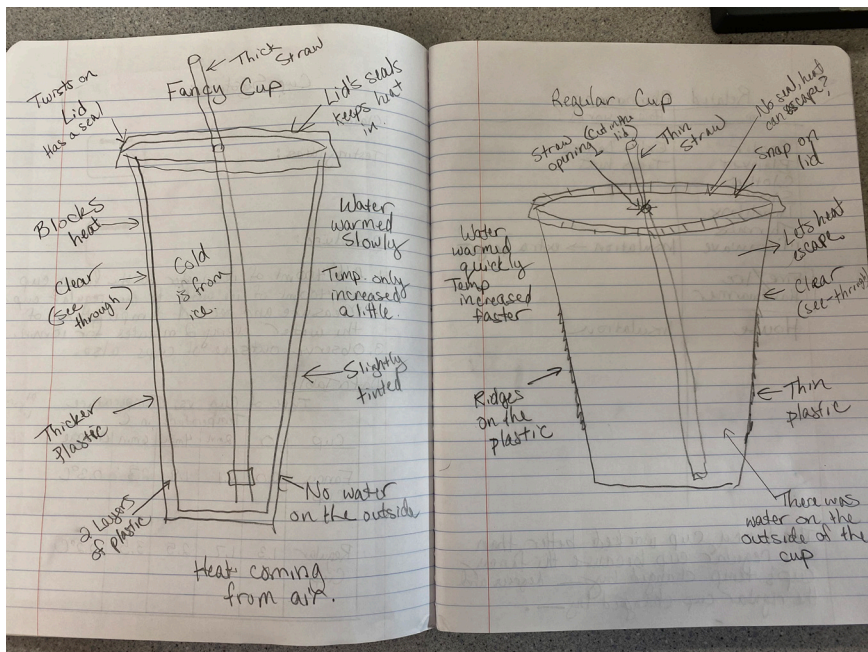 Thick Straw
Fancy Cup
Twists on
Lid
Has a seal
Lid's seals
keeps heat
in.
Blocks
heat
Clear
(see
through)
Cold
is from
ice.
Water
warmed
slowly
Temp. only
increased
a little.
Slightly
tinted
Thicker
plastic
2 Layers
of plastic
No water
on the outside
Heat coming
from air.
Regular Cup
No seal heat
can escape?
Straw (cut in the
opening lid)
Thin
Straw
Snap on
lid
Water
warmed
quickly
Temp
increased
faster
Lets heat
escape.
Clear
(see-through)
Ridges
on the
plastic
Thin
plastic
There was
water on the
outside of the
cup